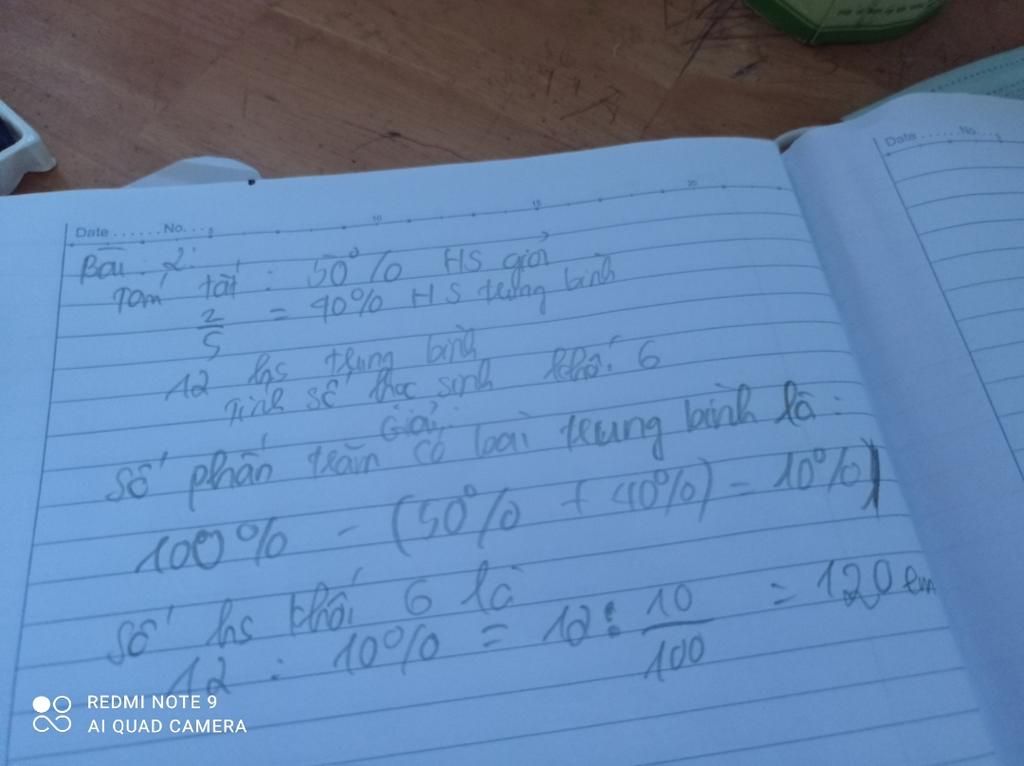 Date ...... No. ... 5
10
15
20
Date ...... No. ... 5
Bài : 2 :
Tóm tắt : 50% HS giỏi
2/5 = 40% HS trung bình
12 hs trung bình
Tính số học sinh khối 6
Giải:
Số phần trăm có loại trung bình là :
100% - (50% + 40%) = 10%)
Số hs khối 6 là
12 : 10% = 12 : 10/100 = 120 em
REDMI NOTE 9
AI QUAD CAMERA